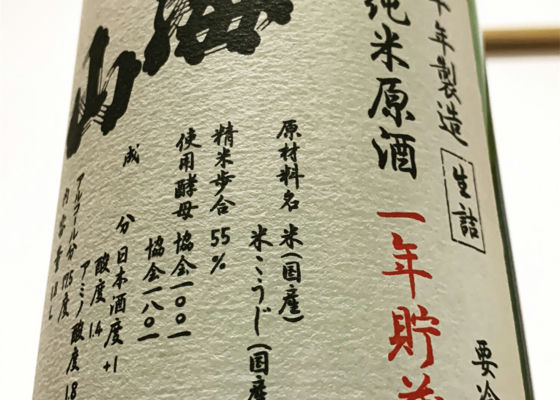 十年製造
生詰
要冷
純米原酒
一年貯
海
山
原材料名 米(国産)
米こうじ(国産
精米歩合 55%
使用酵母 協会一〇〇一
協会一八〇一
成分 日本酒度+1
酸度 1.4
アミノ酸度 1.8
アルコール分 17.5度
内容量 1.8L